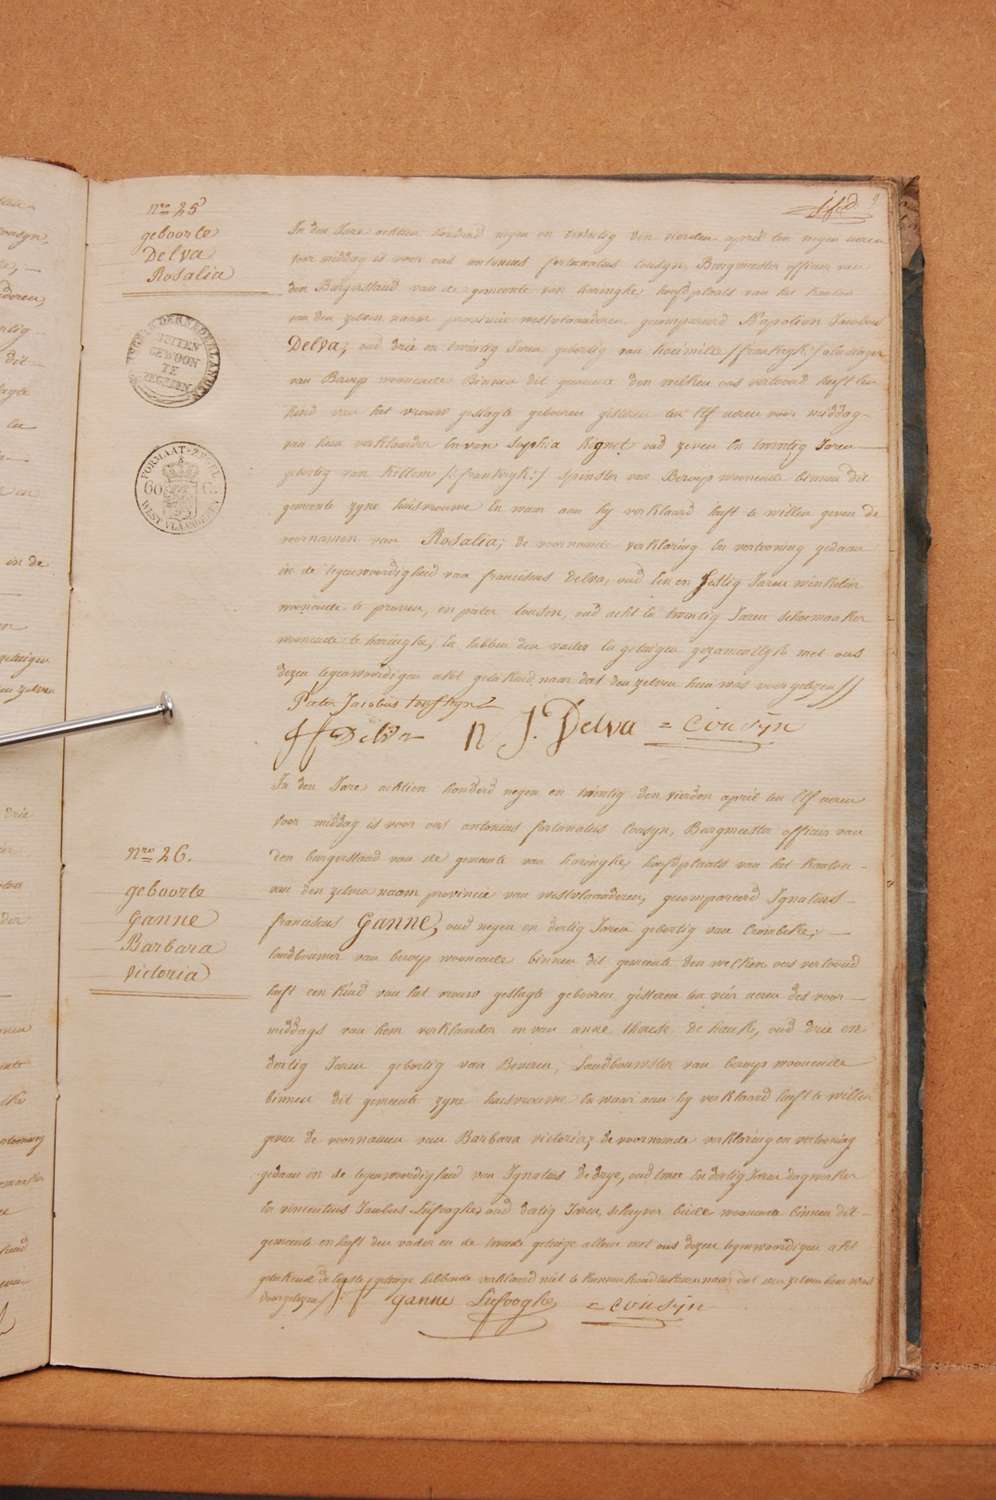 nro 25
geboorte
Delva
Rosalia
In den Jare achtien honderd negen en twintig den vierden april ten negen ueren
voor middag is voor ons antonius fortunatus Cousyn, Burgmeester officier van
den Burgerstand van de gemeente van haringhe hoofdplaats van het kanton
van den zelven naam provincie westvlaanderen, gecompareerd Napoleon Jacobus
Delva, oud drie en twintig Jaren geboortig van /frankryk/
van Beroep woonende binnen dit gemeente den welken ons vertoond heeft een
kind van het vrouw geslagte geboren gisteren ten elf ueren voor middag
van hem verklaarder en van Sophia oud zeven en twintig Jaren
geboortig van Killem /:frankryk:/ spinster van Beroep woonende binnen dit
gemeente zyne huisvrouwe en waer aen hy verklaard heeft te willen geven de
voornaemen van Rosalia; de voornomde verklaring en vertooning gedaan
in de tegenwoordigheid van franciscus Delva, oud een en Jaren winkelier
woonende te proven, en pieter oud acht en twintig Jaren schoemaaker
woonende te haringhe, en hebben den vader en getuigen gezamentlyk met ons
dezen tegenwoordigen akt geteekend naar dat den zelven hun was voorgelezen //
Pieter Jacobus
F F Delva n J. Delva = Cousyn
DER NEDERLANDEN
BUITEN
GEWOON
TE
ZEGELEN
FORMAAT-ZEGEL
60 C.
WEST VLAANDEREN
nro 26.
geboorte
Ganne
Barbara
victoria
In den Jare achtien honderd negen en twintig den vierden april ten elf ueren
voor middag is voor ons antonius fortunatus Cousyn, Burgmeester officier van
den burgerstand van de gemeente van haringhe, hoofdplaats van het kanton
van den zelven naam provincie van westvlaanderen, gecompareerd Ignatius
franciscus Ganne, oud negen en dertig Jaren geboortig van Crombeke,
landbouwer van beroep woonende binnen dit gemeente den welken ons vertoond
heeft een kind van het vrouw geslagte geboren gisteren ten vier ueren des voor
middags van hem verklaarder en van anne therese de haeke, oud drie en
dertig Jaren geboortig van Beveren, landbouwster van beroep woonende
binnen dit gemeente zyne huisvrouwe en waer aen hy verklaard heeft te willen
geven de voornamen van Barbara victoria; de voornomde verklaring en vertooning
gedaan in de tegenwoordigheid van Ignatius oud twee en dertig Jaren dagwerker
en vincentius Jacobus Liefooghe, oud dertig Jaren, schryver beide woonende binnen dit
gemeente en heeft den vader en de tweede getuige alleen met ons dezen tegenwoordigen akt
geteekend de eerste getuige hebbende verklaard niet te kunnen naar dat den zelven hun was
voorgelezen //
ganne Liefooghe = Cousyn